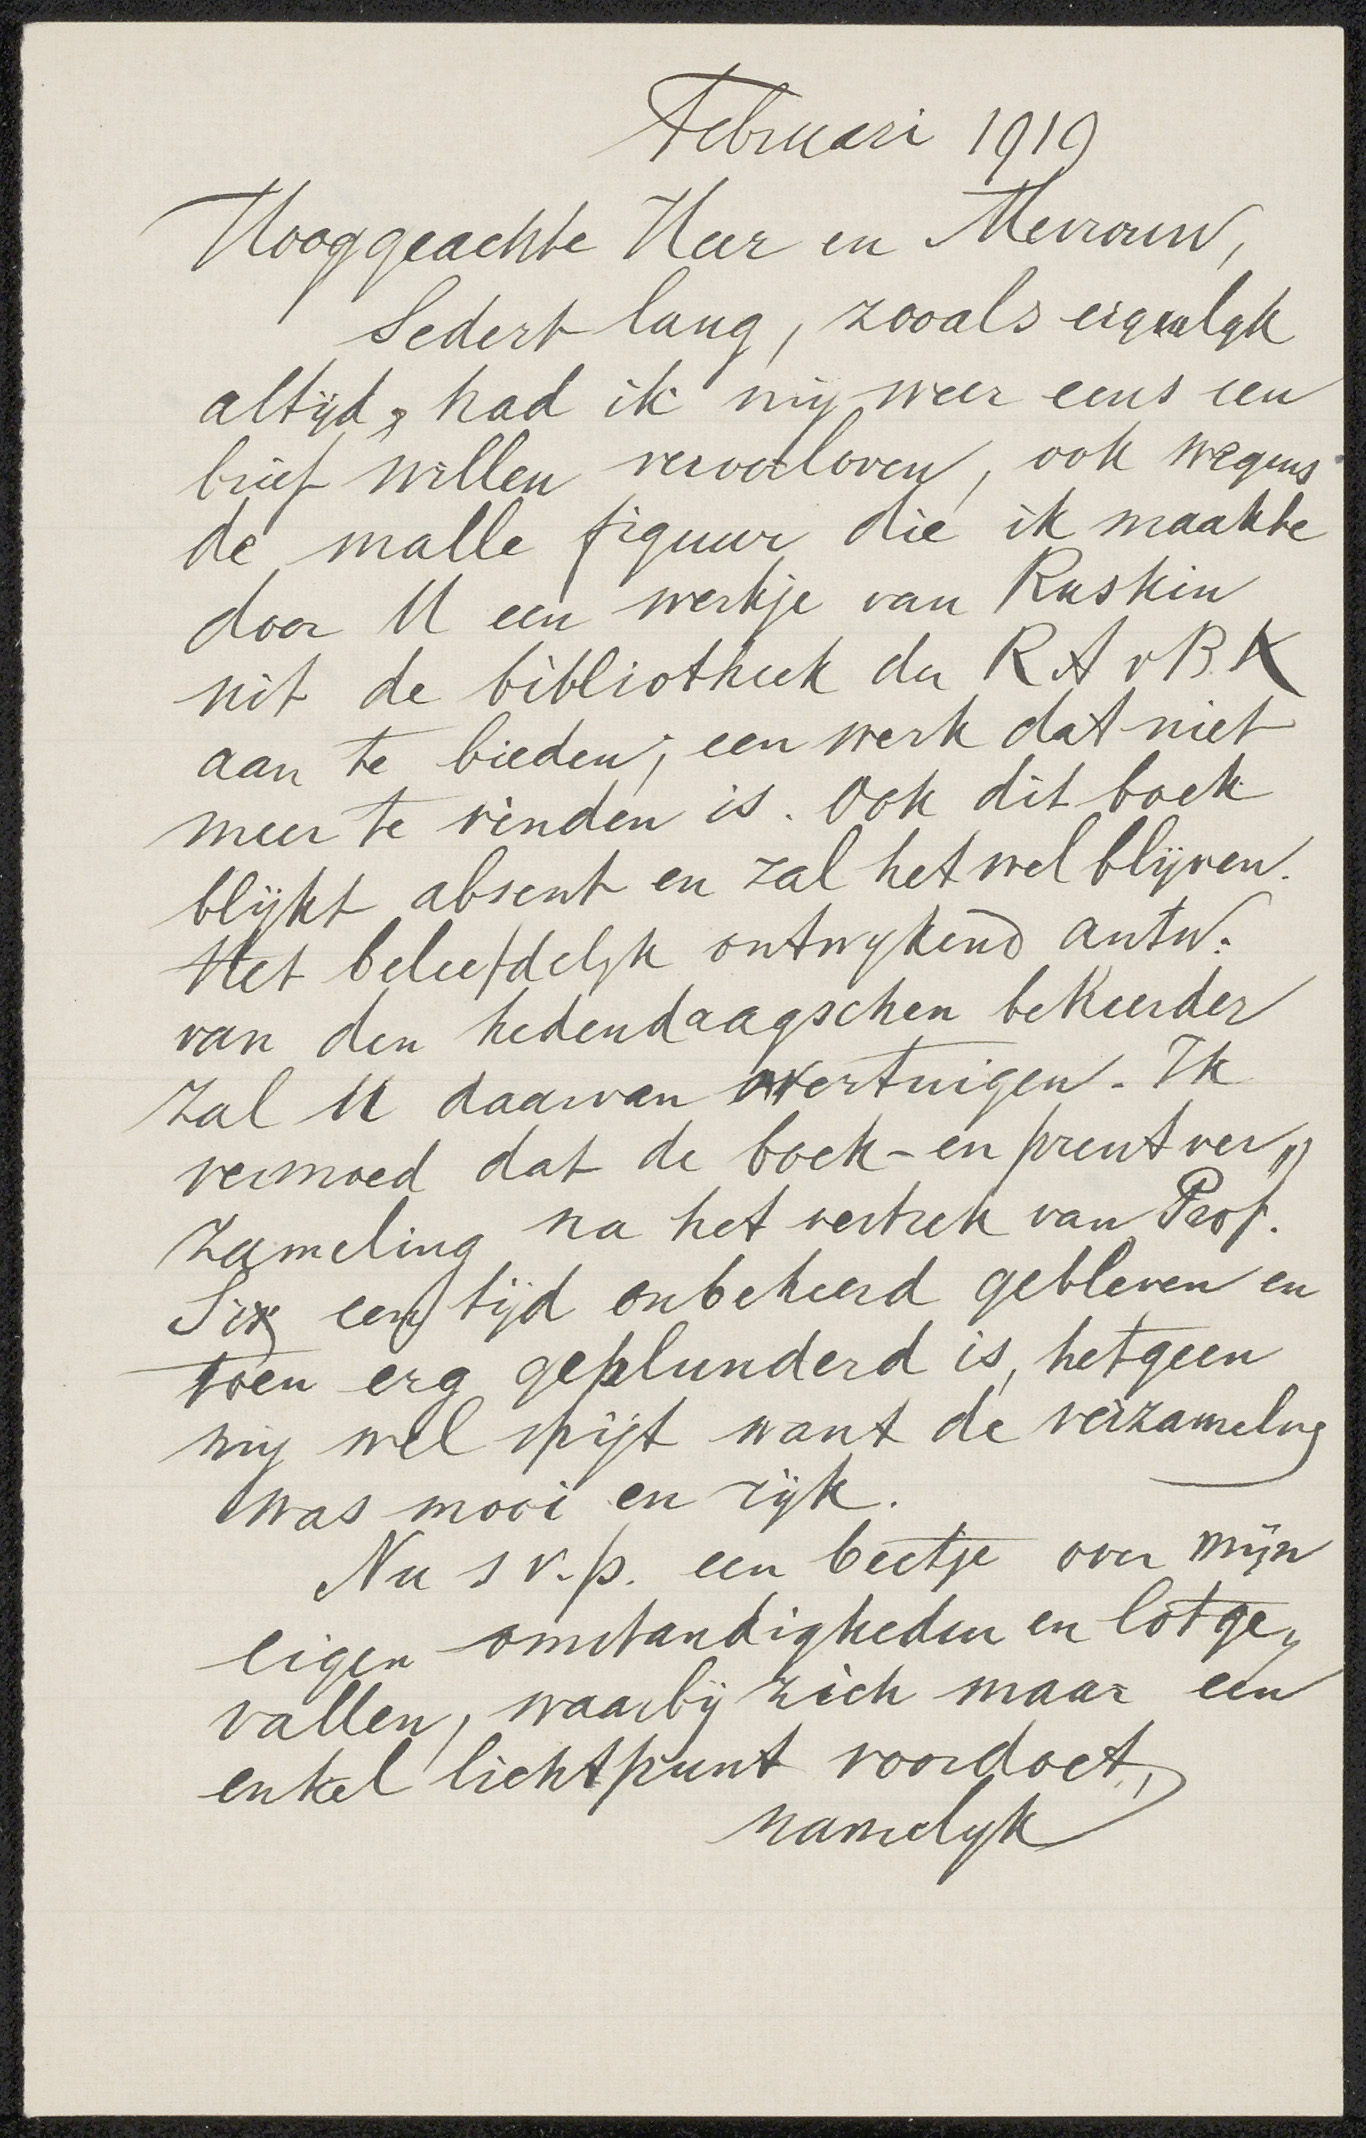 Februari 1919
Hooggeachte Heer en Mevrouw,
Sedert lang, zooals eigenlyk
altijd, had ik my weer eens een
brief willen veroorloven, ook wegens
de malle figuur die ik maakte
door U een werkje van Ruskin
uit de bibliotheek der R A v B K
aan te bieden; een werk dat niet
meer te vinden is. Ook dit boek
blijkt absent en zal het wel blijven.
Het beleefdelyk ontwykend antw.
van den hedendaagschen beheerder
zal U daarvan overtuigen. Ik
vermoed dat de boek- en prentver„
zameling na het vertrek van Prof.
Six een tijd onbeheerd gebleven en
toen erg geplunderd is, hetgeen
my wel spijt want de verzameling
was mooi en rijk.
Nu s v. p. een beetje over mijn
eigen omstandigheden en lotge„
vallen, waarbij zich maar een
enkel lichtpunt voordoet,
namelyk